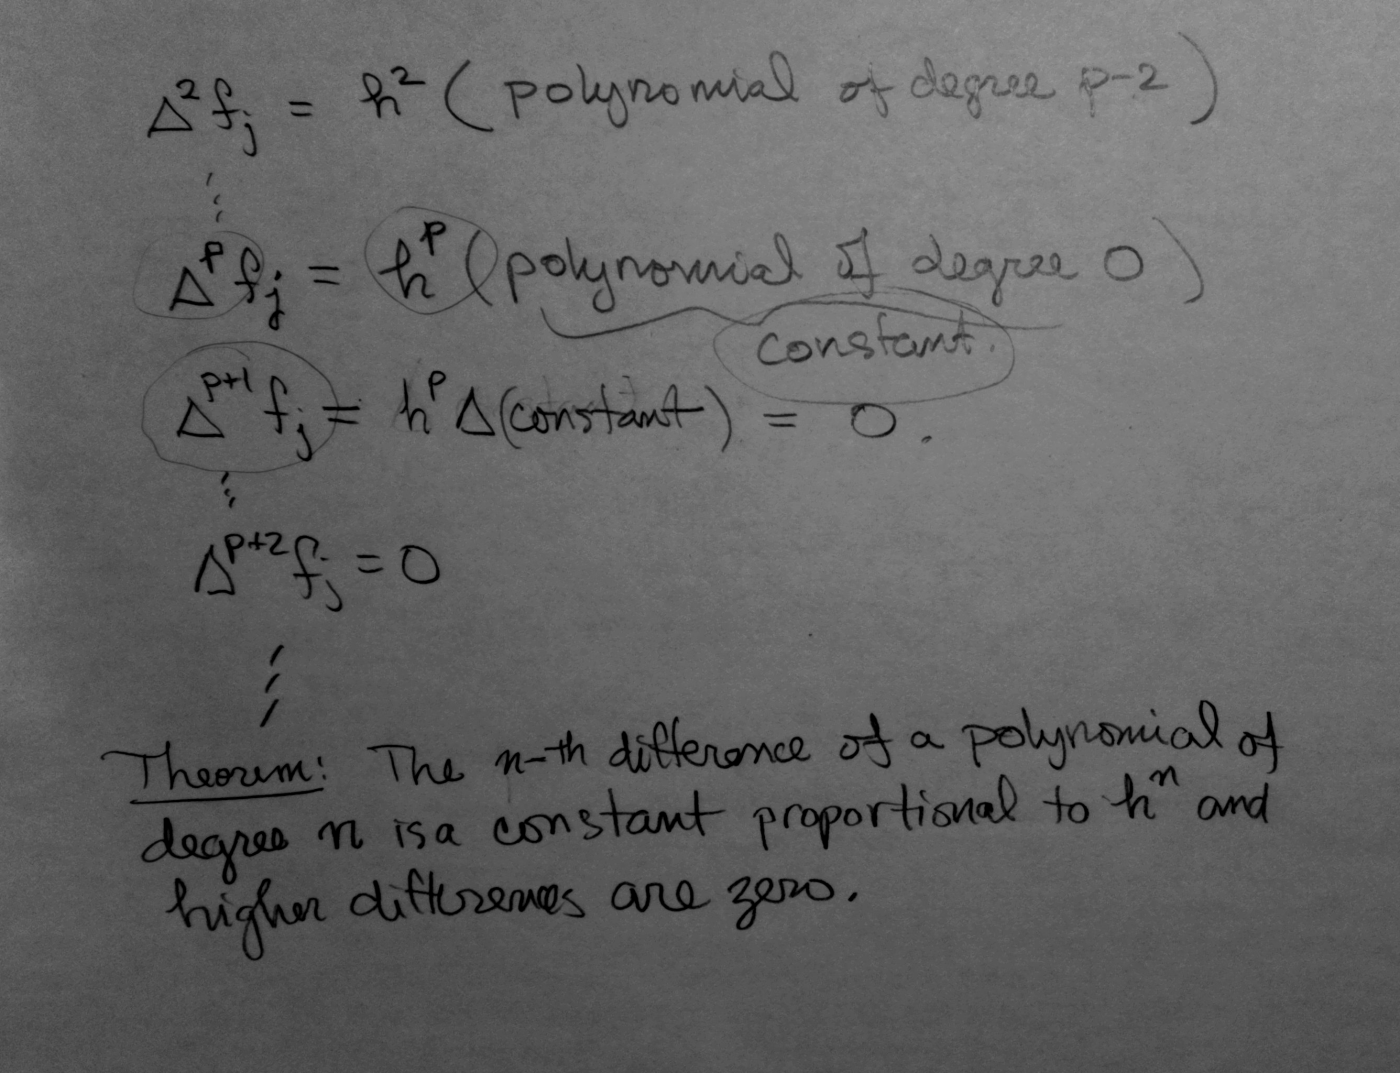 Δ²fⱼ = h² ( polynomial of degree p-2 )
⋮
Δᵖfⱼ = hᵖ ( polynomial of degree 0 )
constant.
Δᵖ⁺¹fⱼ = hᵖ Δ(constant) = 0.
⋮
Δᵖ⁺²fⱼ = 0
⋮
Theorem: The n-th difference of a polynomial of
degree n is a constant proportional to hⁿ and
higher differences are zero.